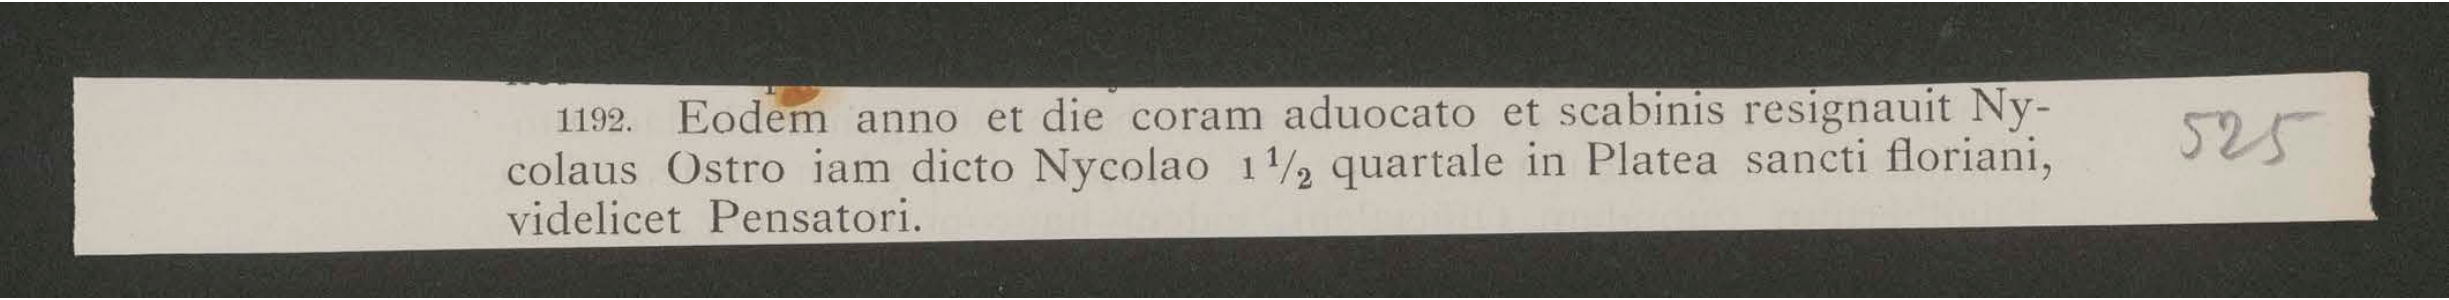 1192. Eodem anno et die coram aduocato et scabinis resignauit Ny-
colaus Ostro iam dicto Nycolao 1 1/2 quartale in Platea sancti floriani,
videlicet Pensatori.
525